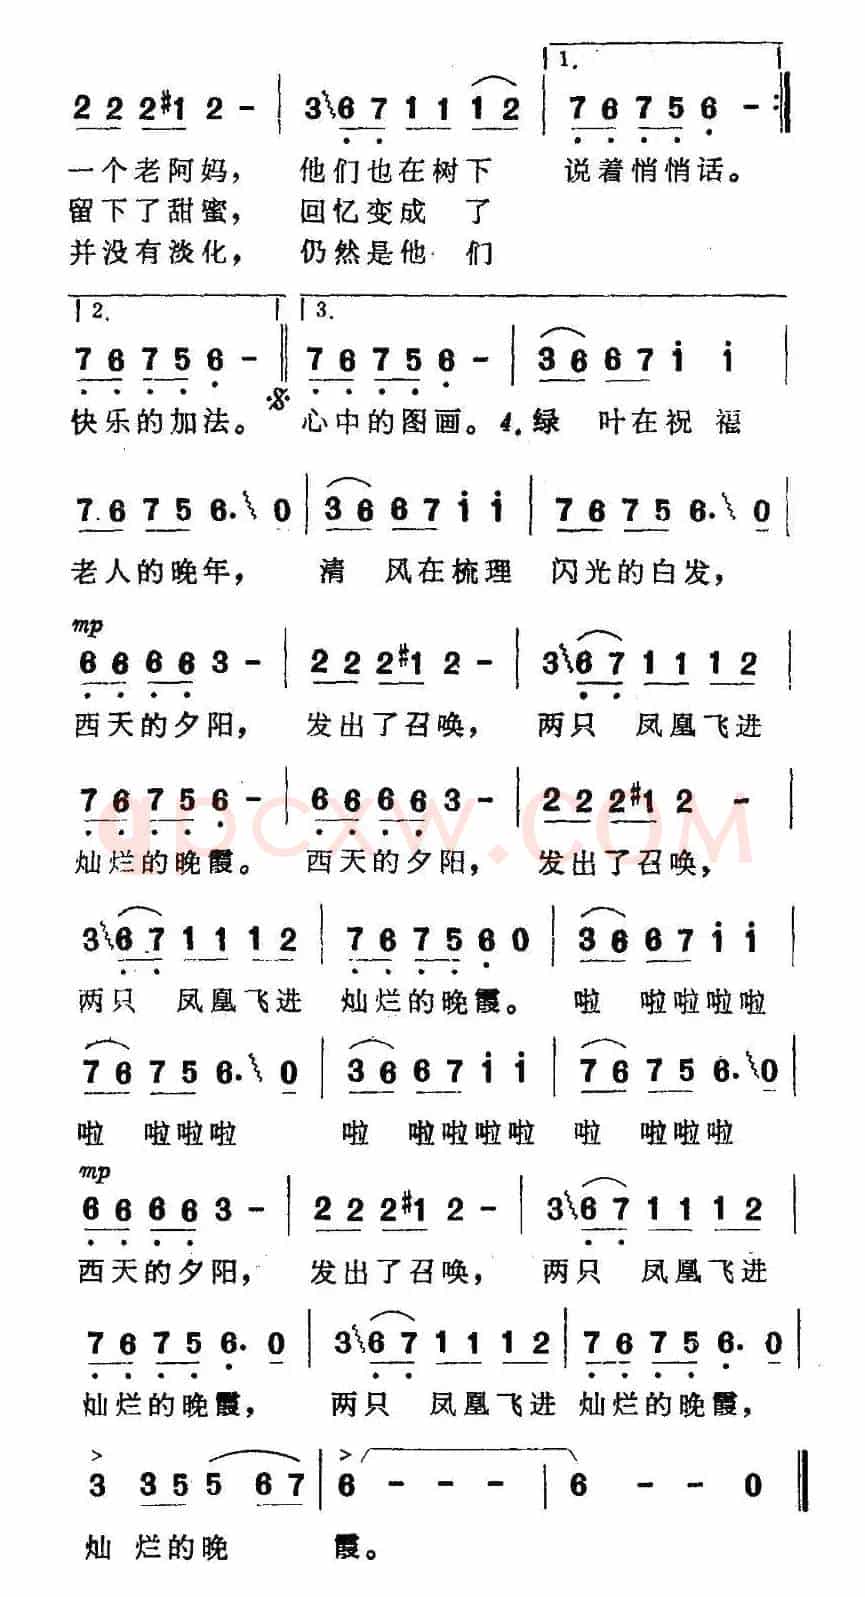 1.
2 2 2 #1 2 - | 3 6 7 1 1 1 2 | 7 6 7 5 6 - :‖
一个老阿妈， 他们也在树下 说着悄悄话。
留下了甜蜜， 回忆变成 了
并没有淡化， 仍然是他 们
2. 3.
7 6 7 5 6 - ‖ 7 6 7 5 6 - | 3 6 6 7 i i |
快乐的加法。 心中的图画。 4. 绿 叶在祝 福
7 6 7 5 6. 0 | 3 6 6 7 i i | 7 6 7 5 6. 0 |
老人的晚年， 清 风在梳理 闪光的白发，
mp
6 6 6 6 3 - | 2 2 2 #1 2 - | 3 6 7 1 1 1 2 |
西天的夕阳， 发出了召唤， 两只 凤凰飞进
7 6 7 5 6 - | 6 6 6 6 3 - | 2 2 2 #1 2 -
灿烂的晚霞。 西天的夕阳， 发出了召唤，
qpcxw.COM
3 6 7 1 1 1 2 | 7 6 7 5 6 0 | 3 6 6 7 i i |
两只 凤凰飞进 灿烂的晚霞。 啦 啦啦啦啦
7 6 7 5 6. 0 | 3 6 6 7 i i | 7 6 7 5 6. 0 |
啦 啦啦啦 啦 啦啦啦啦 啦 啦啦啦
mp
6 6 6 6 3 - | 2 2 2 #1 2 - | 3 6 7 1 1 1 2 |
西天的夕阳， 发出了召唤， 两只 凤凰飞进
7 6 7 5 6. 0 | 3 6 7 1 1 1 2 | 7 6 7 5 6. 0 |
灿烂的晚霞， 两只 凤凰飞进 灿烂的晚霞，
3 3 5 5 6 7 | 6 - - - | 6 - - 0 ‖
灿 烂的晚 霞。